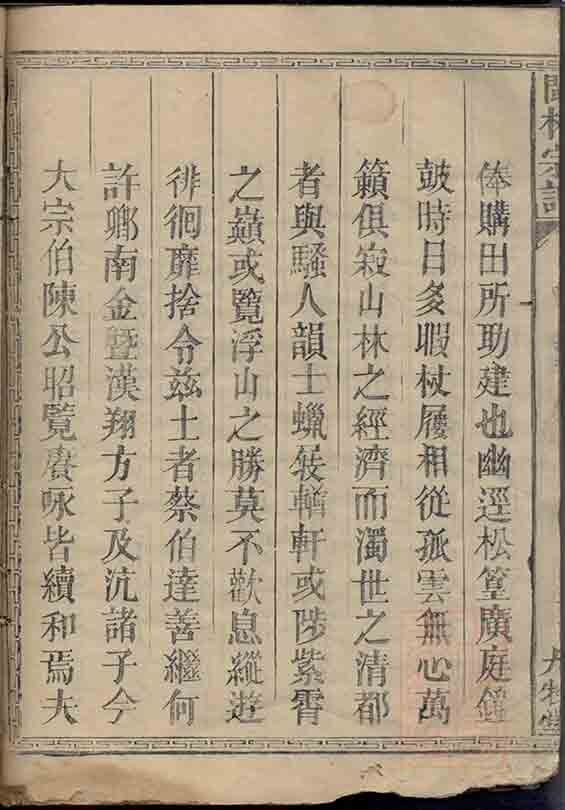 俸購田所助建也幽逕松篁廣庭鐘
皷時日多暇杖履相從孤雲無心萬
籟俱寂山林之經濟而濁世之清都
者與騷人韻士蠟屐輶軒或陟紫霄
之巔或覽浮山之勝莫不歡息縱遊
徘徊靡捨令兹土者蔡伯達善繼何
許鄉南金暨漢翔方子及沆諸子今
大宗伯陳公昭覽賡咏皆續和焉夫